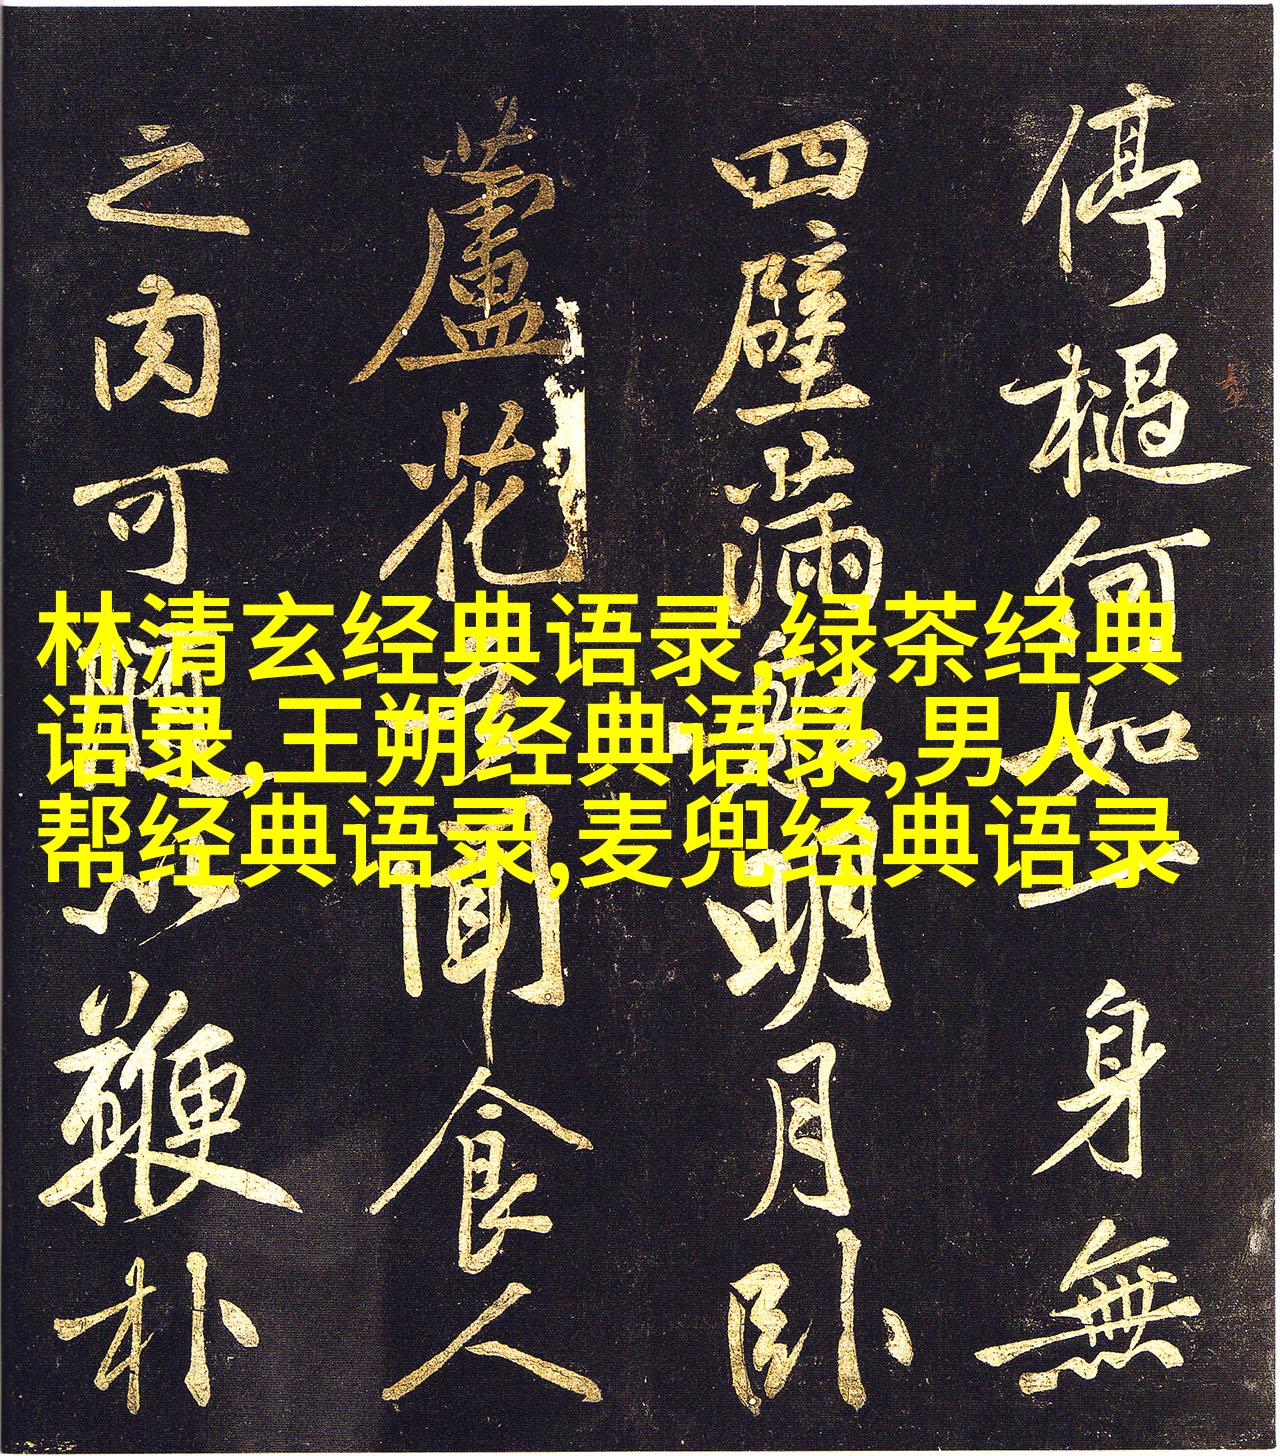 停檛何如一身無
四壁滿船明月臥
蘆花吾聞食人
之肉可隨以鞭朴
林清玄经典语录,绿茶经典
语录,王朔经典语录,男人
帮经典语录,麦兜经典语录